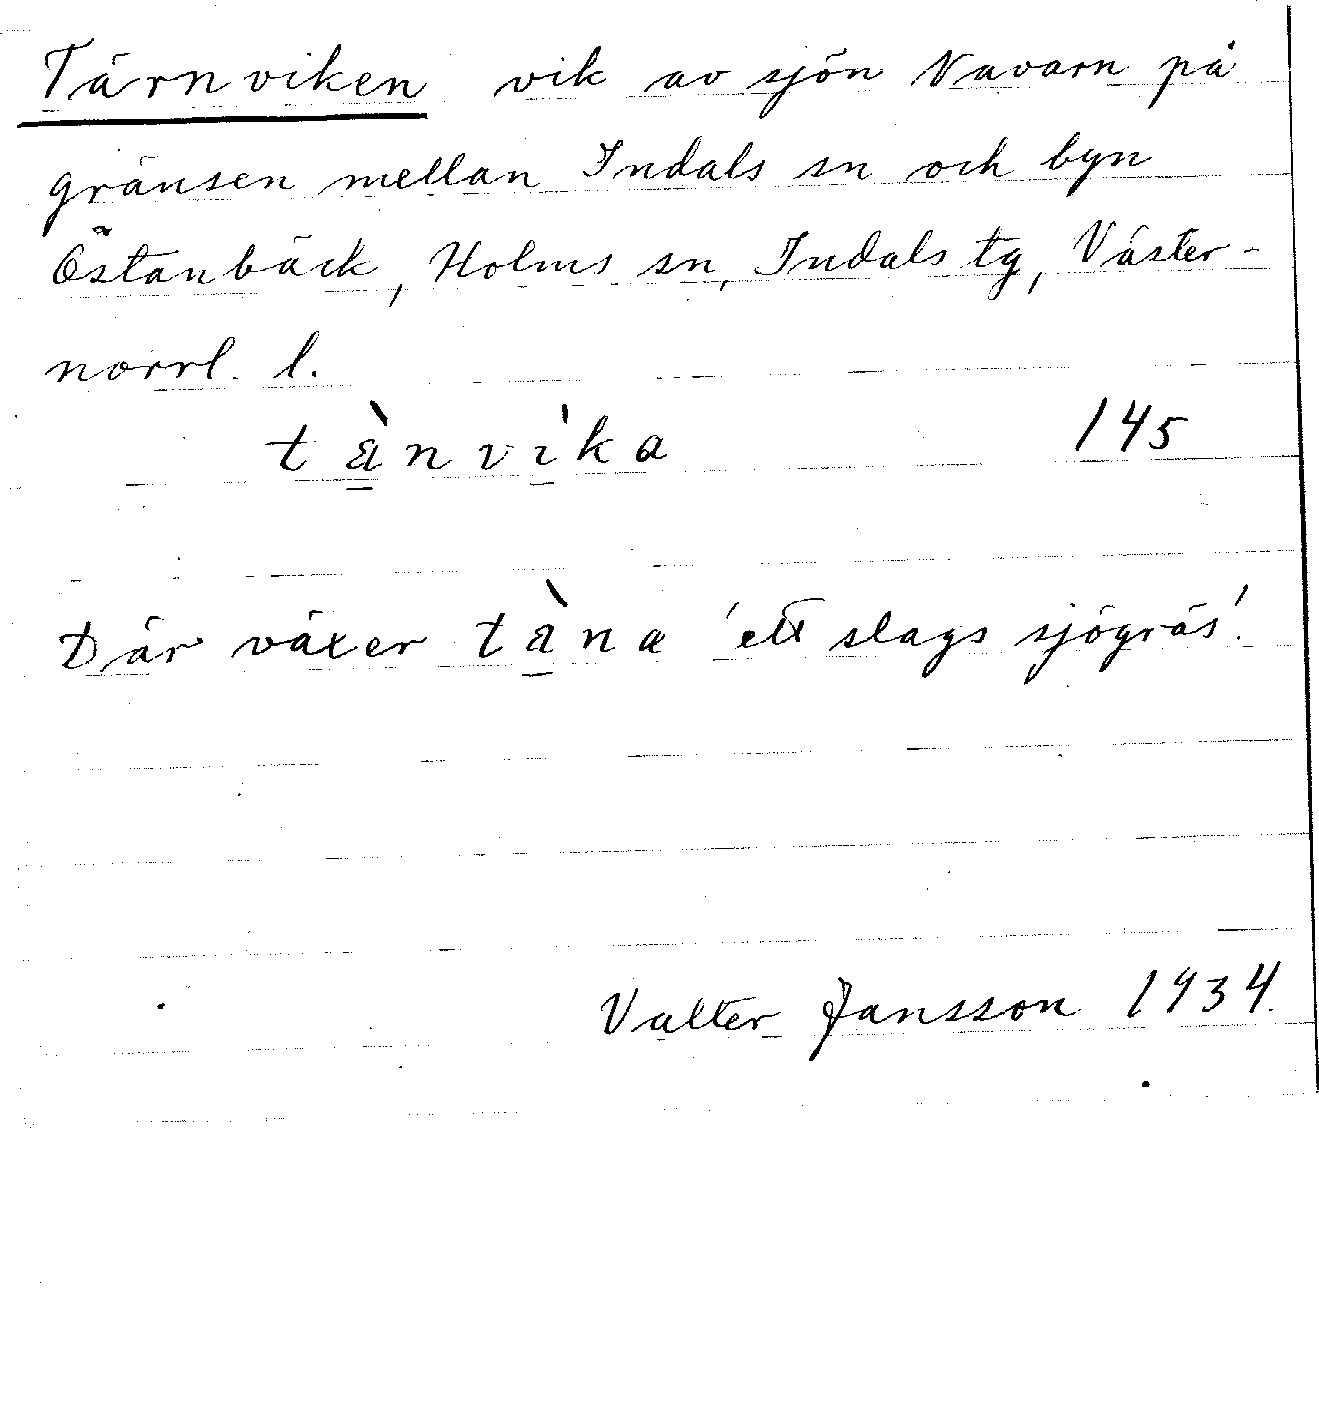 Tärnviken vik av sjön Navarn på
gränsen mellan Indals sn och byn
Östanbäck, Holms sn, Indals tg, Väster-
norrl. l.
tä̀nvìka 145
Där växer tä̀na 'ett slags sjögräs'.
Valter Jansson 1934.